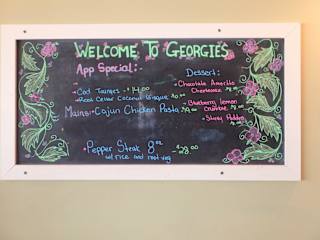 WELCOME TO GEORGIES
App Special:-
• Cod Tounges - $14.00
• Real Cellar Coconut Bisque
Mains: • Cajun Chicken Pasta
• Pepper Steak 8oz - $28.00
w/ Rice and root veg
Dessert:
• Chocolate Amaretto
Cheesecake
• Blueberry Lemon
• Sticky Pudding